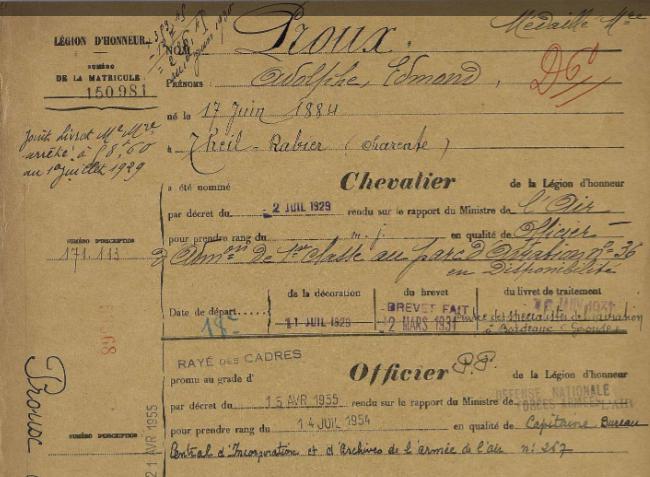 Médaille Mre
LÉGION D'HONNEUR
NUMÉRO
DE LA MATRICULE
150981
NOM
Proux
D6
PRÉNOMS
Adolphe, Edmond,
né le 17 Juin 1884
à Theil-Rabier (Charente)
Joint Livret Mle Mre
arrêté à 78,60
au 1er Juillet 1929
a été nommé Chevalier de la Légion d'honneur
par décret du 2 JUIL 1929 rendu sur le rapport du Ministre de l'Air
pour prendre rang du m. j. en qualité de Officier
d'Admon de 1re classe au parc d'Aviation n° 36
en disponibilité
NUMÉRO D'INSCRIPTION
171.113
de la décoration du brevet du livret de traitement
Date de départ 11 JUIL 1929 BREVET FAIT
2 MARS 1931
Centre des spécialistes de l'aviation
à Bordeaux (Gironde)
RAYÉ DES CADRES
Officier P.P.
promu au grade d' de la Légion d'honneur
par décret du 15 AVR 1955 rendu sur le rapport du Ministre de DÉFENSE NATIONALE
FORCES ARMÉES, AIR
pour prendre rang du 14 JUIL 1954 en qualité de Capitaine Bureau
Central d'Incorporation et d'Archives de l'armée de l'air n° 267
NUMÉRO D'INSCRIPTION
21 AVR 1955